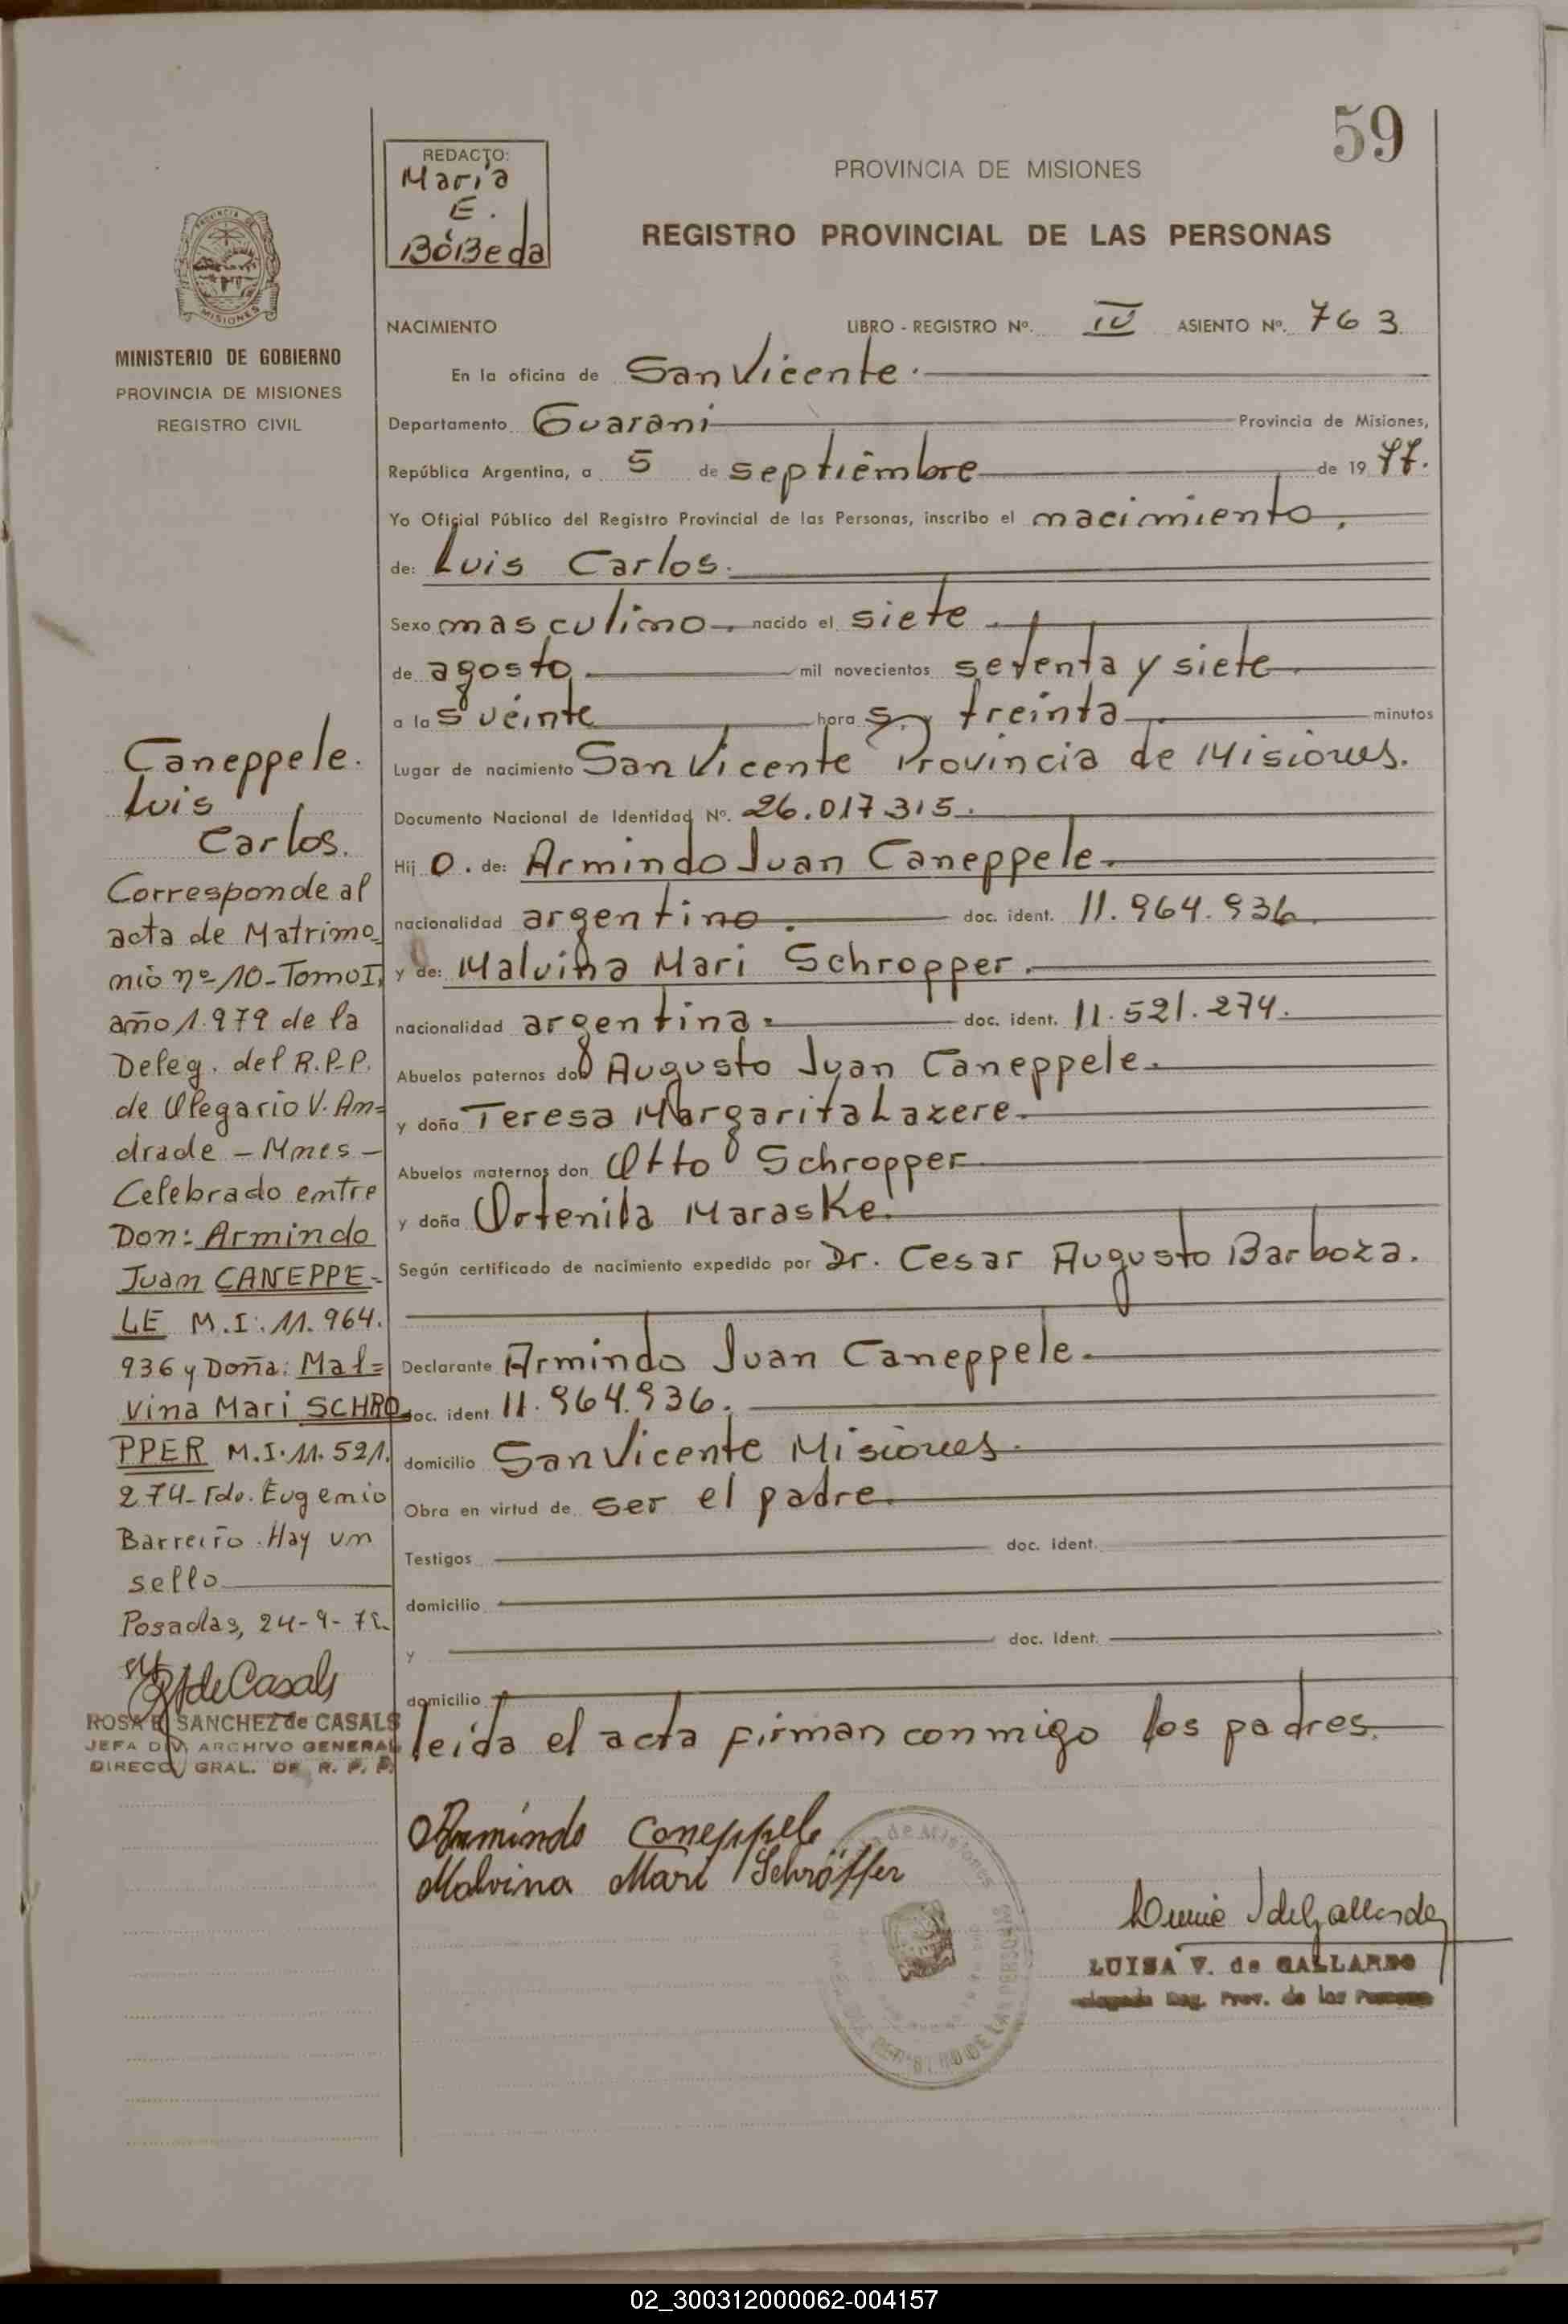 59
REDACTO:
María
E.
BóBeda
PROVINCIA DE MISIONES
REGISTRO PROVINCIAL DE LAS PERSONAS
MINISTERIO DE GOBIERNO
PROVINCIA DE MISIONES
REGISTRO CIVIL
NACIMIENTO LIBRO - REGISTRO Nº. IV ASIENTO Nº. 763
En la oficina de San Vicente.
Departamento Guarani Provincia de Misiones,
República Argentina, a 5 de septiembre de 1977.
Yo Oficial Público del Registro Provincial de las Personas, inscribo el nacimiento.
de: Luis Carlos.
Sexo masculino. nacido el siete.
de agosto. mil novecientos setenta y siete.
a las veinte horas y treinta minutos
Lugar de nacimiento San Vicente Provincia de Misiones.
Documento Nacional de Identidad Nº. 26.017.315.
Hijo. de: Armindo Juan Caneppele.
nacionalidad argentino. doc. ident. 11.964.936.
y de: Malvina Mari Schropper.
nacionalidad argentina. doc. ident. 11.521.274.
Abuelos paternos don Augusto Juan Caneppele.
y doña Teresa Margarita Lazere.
Abuelos maternos don Otto Schropper
y doña Ortenila Maraske.
Según certificado de nacimiento expedido por Dr. Cesar Augusto Barboza.
Declarante Armindo Juan Caneppele.
doc. ident. 11.964.936.
domicilio San Vicente Misiones.
Obra en virtud de ser el padre.
Testigos doc. ident.
domicilio
y doc. ident.
domicilio
leida el acta firman conmigo los padres.
Caneppele.
Luis
Carlos.
Corresponde al
acta de Matrimo=
nio nº=10-Tomo I,
año 1.979 de la
Deleg. del R.P.P.
de Olegario V. An=
drade - Mnes -
Celebrado entre
Don: Armindo
Juan CANEPPE=
LE M.I: 11.964.
936 y Doña: Mal=
vina Mari SCHRO
PPER M.I. 11.521.
274- Fdo. Eugenio
Barreiro. Hay un
sello
Posadas, 24-9-
de Casals
ROSA E. SANCHEZ de CASALS
JEFA DIV. ARCHIVO GENERAL
DIRECC. GRAL. DE R. P. P.
Armindo Caneppele
Malvina Mari Schröpper
LUISA V. de GALLARDO
Reg. Prov. de las Personas
02_300312000062-004157